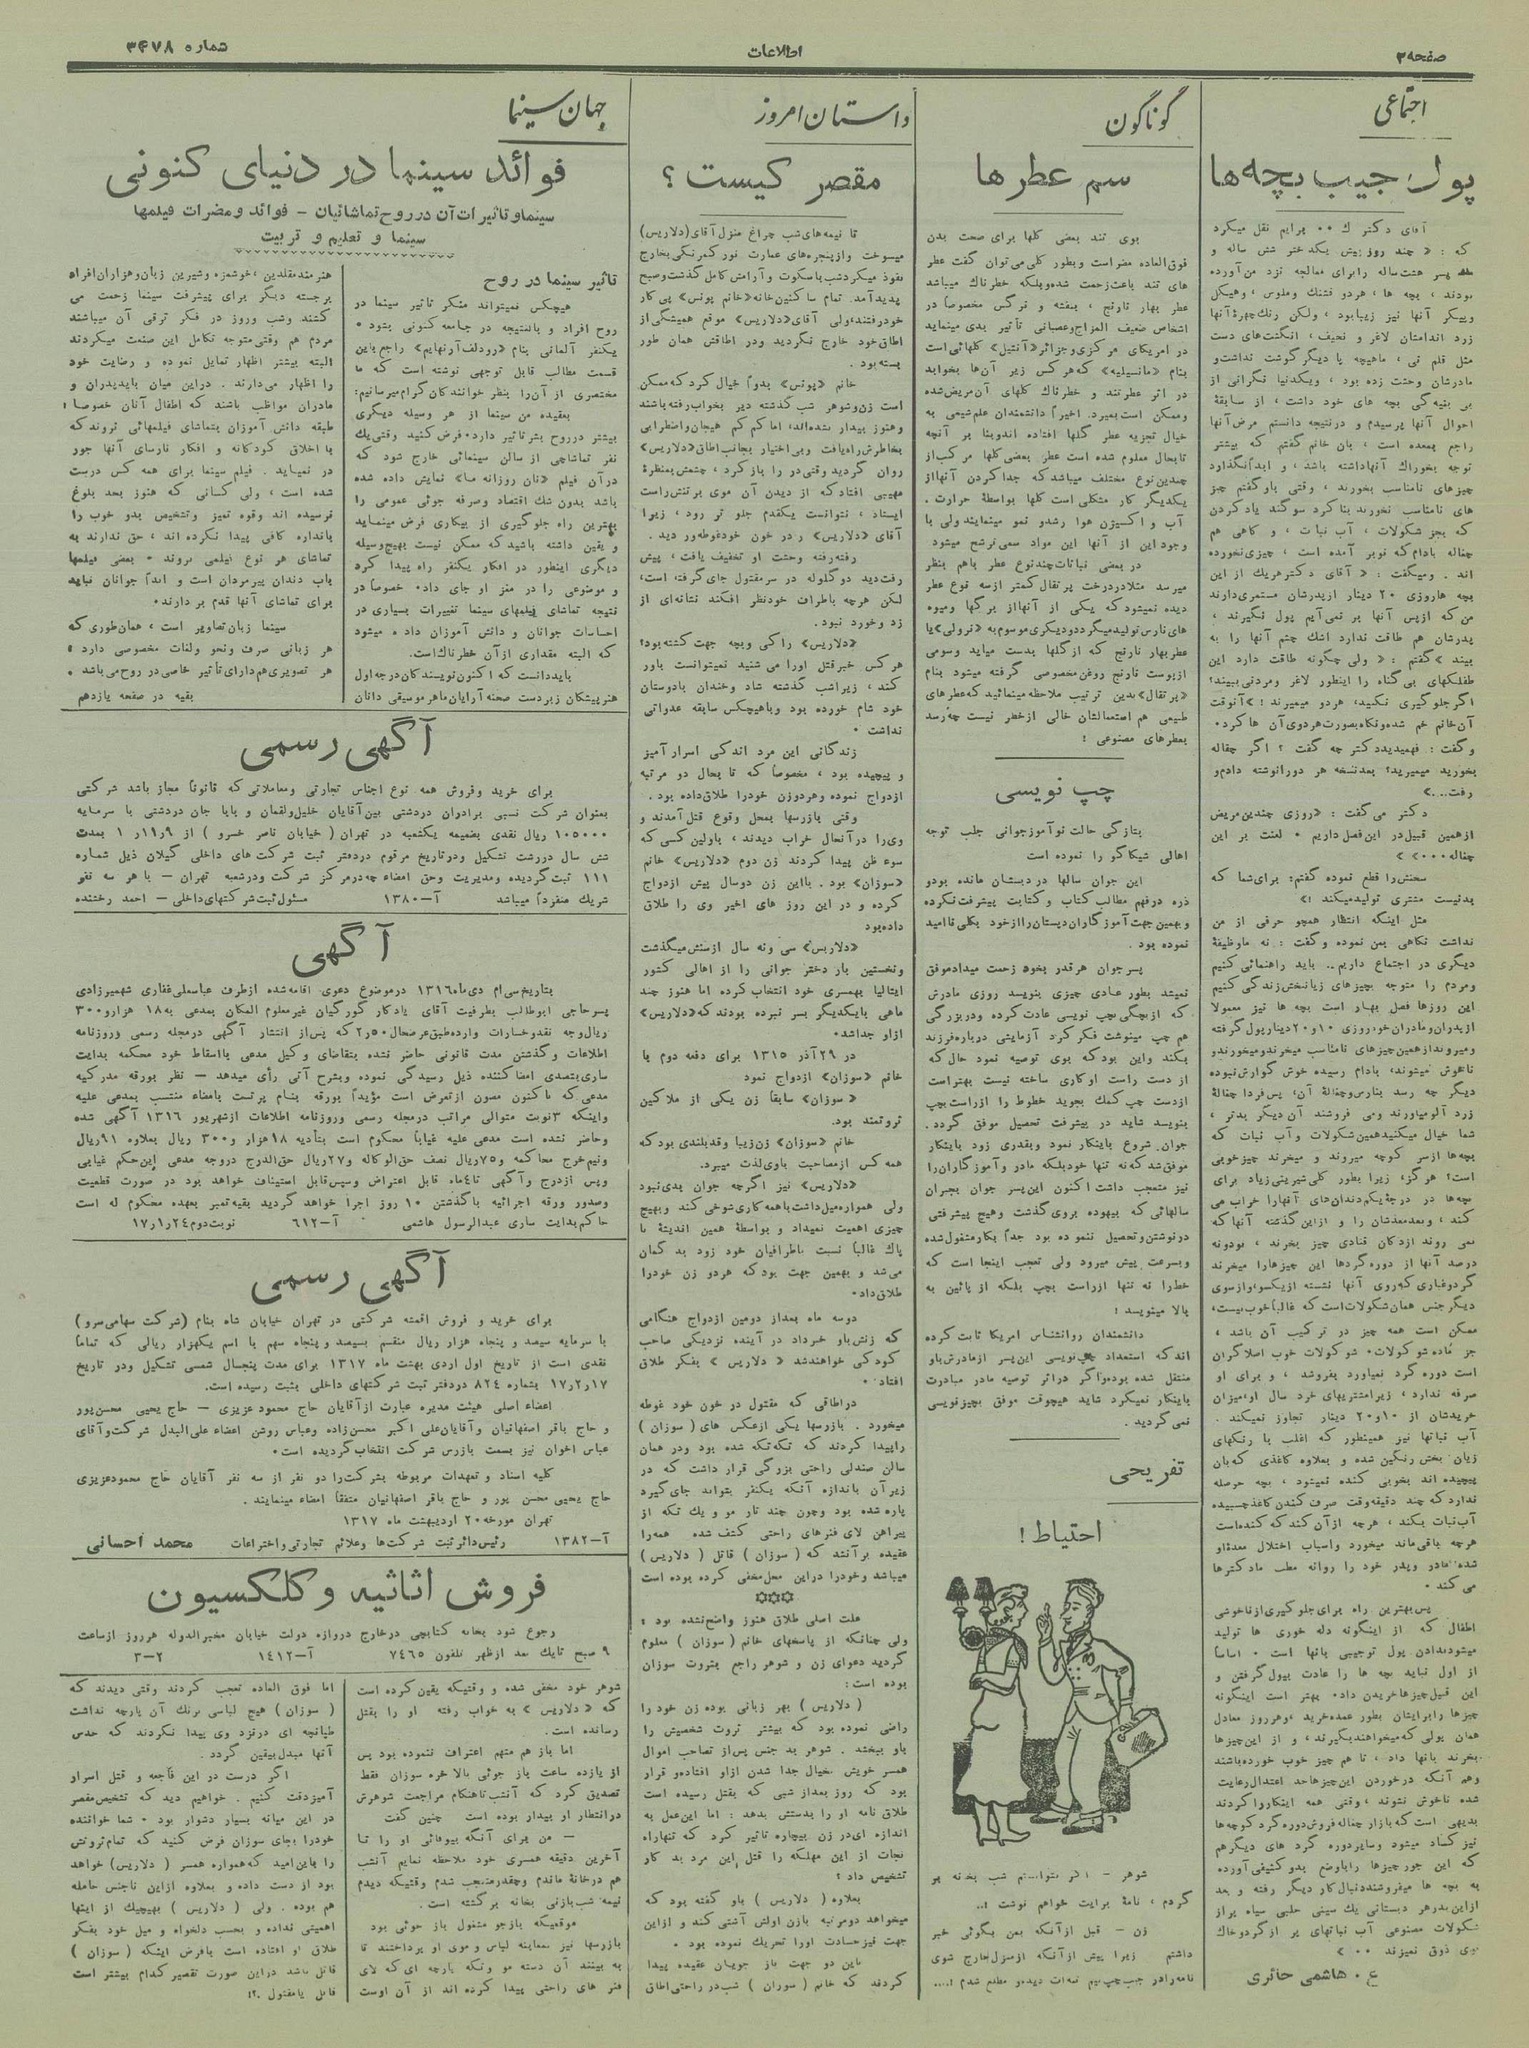 صفحه ۳
اطلاعات
شماره ۳۴۷۸
اجتماعی
پول جیب بچه‌ها
آقای دکتر ك ۰۰ برایم نقل میکرد
که : « چند روز پیش یکدختر شش ساله و
پسر هشت ساله را برای معالجه نزد من آورده
بودند ، بچه ها ، هر دو قشنك و ملوس ، و هیکل
و پیکر آنها نیز زیبا بود ، ولی رنك چهرۀ آنها
زرد اندامتان لاغر و نحیف ، انگشت‌های دست
مثل قلم نی ، ماهیچه پا دیگر گوشت نداشت و
مادرشان وحشت زده بود ، و یکدنیا نگرانی از
بی بنیه‌گی بچه های خود داشت ، از سابقهٔ
احوال آنها پرسیدم و در نتیجه دانستم مرض آنها
راجع بمعده است ، بان خانم گفتم که بیشتر
توجه بخوراك آنها داشته باشد ، و ابداً نگذارد
چیز های نامناسب بخورند ، وقتی باو گفتم چیز
های نامناسب نخورند بنا کرد سوگند یاد کردن
که بجز شکولات ، آب نبات ، و گاهی هم
چغاله بادام که نوبر آمده است ، چیزی نخورده
اند . و میگفت : « آقای دکتر هریك از این
بچه ها روزی ۲۰ دینار از پدرشان مستمری دارند
من که از پس آنها بر نمی‌آیم پول نگیرند ،
پدرشان هم طاقت ندارد اشك چشم آنها را به
بیند » گفتم : « ولی چگونه طاقت دارد این
طفلکهای بی گناه را اینطور لاغر و مردنی ببیند؟
اگر جلوگیری نکنید، هر دو میمیرند !» آنوقت
آن خانم خم شده و نگاه بصورت هر دوی آن ها کرد.
و گفت : فهمیدید دکتر چه گفت ؟ اگر چغاله
بخورید میمیرید؟ بعد نسخه هر دو را نوشته دادم و
رفت....»
دکتر می گفت : « روزی چندین مریض
از همین قبیل در این فصل داریم . لعنت بر این
چغاله ۰۰۰ »
سخنش را قطع نموده گفتم: برای شما که
بد نیست مشتری تولید میکند !»
مثل اینکه انتظار همچو حرفی از من
نداشت نگاهی بمن نموده و گفت : نه ما وظیفهٔ
دیگری در اجتماع داریم.. باید راهنمائی کنیم
و مردم را متوجه بچیزهای زیانبخش زندگی کنیم
این روزها فصل بهار است بچه ها نیز معمولا
از پدران و مادران خود روزی ۱۰ و ۲۰ دینار پول گرفته
و میروند از همین چیزهای نامناسب میخرند و میخورند و
ناخوش میشوند، بادام رسیده خوش گوارش نبوده
دیگر چه رسد بنارس و چغالهٔ آن، پس فردا چغالهٔ
زرد آلو میآورند و می فروشند آن دیگر بدتر ،
شما خیال میکنید همین شکولات و آب نبات که
بچه‌ها از سر کوچه میروند و میخرند چیز خوبی
است؟ هرگز، زیرا بطور کلی شیرینی زیاد برای
بچه‌ها در درجۀ یکم دندان‌های آنها را خراب می
کند ، و بعد معدشان را و از این گذشته آنها که
نمی روند از دکان قنادی چیز بخرند ، نود و نه
درصد آنها از دوره گردها این چیزها را میخرند
گرد و غباری که روی آنها نشسته از یکسو، و از سوی
دیگر جنس همان شکولات است که غالباً خوب نیست،
ممکن است همه چیز در ترکیب آن باشد ،
جز ماده شوکولات ، شوکولات خوب اصلا گران
است دوره گرد نمیآورد بفروشد ، و برای او
صرفه ندارد ، زیرا مشتریهای خرد سال او میزان
خریدشان از ۱۰ و ۲۰ دینار تجاوز نمیکند .
آب نباتها نیز همینطور که اغلب با رنگهای
زیان بخش رنگین شده و بعلاوه کاغذی که بان
پیچیده اند بخوبی کنده نمیشود ، بچه حوصله
ندارد که چند دقیقه وقت صرف کندن کاغذ چسبیده
آب نبات بکند ، هر چه از آن کند که کنده است
هر چه باقی ماند میخورد و اسباب اختلال معدۀ او
شده مادر و پدر خود را روانه مطب ما دکترها
می کند .
پس بهترین راه برای جلوگیری از ناخوشی
اطفال که از اینگونه دله خوری ها تولید
میشود ندادن پول توجیبی بانها است . اساساً
از اول نباید بچه ها را عادت بپول گرفتن و
این قبیل چیزها خریدن داد. بهتر است اینگونه
چیزها را برایشان بطور عمده خرید، و هر روز معادل
همان پولی که میخواهند بگیرند، و از این چیزها
بخرند بانها داد ، تا هم چیز خوب خورده باشند
و هم آنکه در خوردن این چیزها حد اعتدال رعایت
شده ناخوش نشوند ، وقتی همه اینکار را کردند
بدیهی است که بازار چغاله فروش دوره گرد کوچه‌ها
نیز کساد میشود و سایر دوره گرد های دیگر هم
که این جور چیزها را با وضع بد و کثیفی آورده
به بچه ها میفروشند دنبال کار دیگر رفته و بعد
از این بدر هر دبستانی یك سینی حلبی سیاه پر از
شکولات مصنوعی آب نباتهای پر از گرد و خاك
بوی ذوق نمیزند ۰۰ »
ع . هاشمی حائری
گوناگون
سم عطر ها
بوی تند بعضی گلها برای صحت بدن
فوق‌العاده مضر است و بطور کلی می‌توان گفت عطر
های تند باعث زحمت شده و بلکه خطرناك میباشد
عطر بهار نارنج ، بنفشه و نرگس مخصوصاً در
اشخاص ضعیف المزاج و عصبانی تأثیر بدی مینماید
در امریکای مرکزی و جزائر «آنتیل» گلهائی است
بنام «مانسیلیه» که هر کس زیر آن‌ها بخوابد
در اثر عطر تند و خطرناك گلهای آن مریض شده
و ممکن است بمیرد. اخیراً دانشمندان علم شیمی به
خیال تجزیه عطر گلها افتاده اند و بنا بر آنچه
تا بحال معلوم شده است عطر بعضی گلها مرکب از
چندین نوع مختلف میباشد که جدا کردن آنها از
یکدیگر کار مشکلی است گلها بواسطهٔ حرارت .
آب و اکسیژن هوا رشد و نمو مینمایند ولی با
وجود این از آنها این مواد سمی ترشح میشود
در بعضی نباتات چند نوع عطر باهم بنظر
میرسد مثلا در درخت پرتقال کمتر از سه نوع عطر
دیده نمیشود که یکی از آنها از برگها و میوه
های نارس تولید میگردد و دیگری موسوم به «نرولی» یا
عطر بهار نارنج که از گلها بدست میاید و سومی
از پوست نارنج روغن مخصوصی گرفته میشود بنام
«پرتقال» بدین ترتیب ملاحظه مینمائید که عطر های
طبیعی هم استعمالشان خالی از خطر نیست چه رسد
بعطرهای مصنوعی !
چپ نویسی
بتازگی حالت نو آموز جوانی جلب توجه
اهالی شیکاگو را نموده است
این جوان سالها در دبستان مانده بود و
ذره در فهم مطالب کتاب و کتابت پیشرفت نکرده
و بهمین جهت آموزگاران دبستان را از خود بکلی ناامید
نموده بود .
پسر جوان هر قدر بخود زحمت میداد موفق
نمیشد بطور عادی چیزی بنویسد روزی مادرش
که از بچگی چپ نویسی عادت کرده و در بزرگی
هم چپ مینوشت فکر کرد آزمایشی درباره فرزند
بکند و این بود که بوی توصیه نمود حال که
از دست راست او کاری ساخته نیست بهتر است
از دست چپ کمك بجوید خطوط را از راست بچپ
بنویسد شاید در پیشرفت تحصیل موفق گردد.
جوان شروع باینکار نمود و بقدری زود باینکار
موفق شد که نه تنها خود بلکه مادر و آموزگاران را
نیز متعجب داشت اکنون این پسر جوان بجبران
سالهائی که بیهوده بروی گذشت و هیچ پیشرفتی
در نوشتن و تحصیل ننموده بود جداً بکار مشغول شده
و بسرعت پیش میرود ولی تعجب اینجا است که
خط را نه تنها از راست بچپ بلکه از پائین به
بالا مینویسد !
دانشمندان روانشناس امریکا ثابت کرده
اند که استعداد چپ‌نویسی این پسر از مادرش باو
منتقل شده بوده و اگر در اثر توصیه مادر مبادرت
باینکار نمیکرد شاید هیچوقت موفق بچیز نویسی
نمی گردید .
تفریحی
احتیاط !
شوهر - اگر نتوانستم شب بخانه بر
گردم ، نامهٔ برایت خواهم نوشت !..
زن - قبل از آنکه بمن بگوئی خبر
داشتم زیرا پیش از آنکه از منزل خارج شوی
نامه را در جیب
داستان امروز
مقصر کیست ؟
تا نیمه های شب چراغ منزل آقای (دلاریس)
میسوخت و از پنجره های عمارت نور کمرنگی بخارج
نفوذ میکرد شب با سکوت و آرامش کامل گذشت و صبح
پدید آمد. تمام ساکنین خانه «خانم پونس» پی کار
خود رفتند، ولی آقای «دلاریس» موقع همیشگی از
اطاق خود خارج نگردید و در اطاقش همان طور
بسته بود .
خانم «پونس» بدواً خیال کرد که ممکن
است زن و شوهر شب گذشته دیر بخواب رفته باشند
و هنوز بیدار نشده‌اند، اما کم کم هیجان و اضطرابی
بخاطرش راه یافت و بی اختیار بجانب اطاق «دلاریس»
روان گردید وقتی در را باز کرد ، چشمش بمنظرهٔ
مهیبی افتاد که از دیدن آن موی بر تنش راست
ایستاد ، نتوانست یکقدم جلو تر رود ، زیرا
آقای «دلاریس» را در خون خود غوطه‌ور دید.
رفته رفته وحشت او تخفیف یافت ، پیش
رفت دید دو گلوله در سر مقتول جای گرفته است،
لکن هر چه باطراف خود نظر افکند نشانه‌ای از
زد و خورد نبود.
«دلاریس» را کی و بچه جهت کشته بود؟
هر کس خبر قتل او را می شنید نمیتوانست باور
کند ، زیرا شب گذشته شاد و خندان با دوستان
خود شام خورده بود و با هیچکس سابقه عدواتی
نداشت .
زندگانی این مرد اندکی اسرار آمیز
و پیچیده بود ، مخصوصاً که تا بحال دو مرتبه
ازدواج نموده و هر دو زن خود را طلاق داده بود .
وقتی بازرسها بمحل وقوع قتل آمدند و
وی را در آنحال خراب دیدند ، باولین کسی که
سوء ظن پیدا کردند زن دوم «دلاریس» خانم
«سوزان» بود . با این زن دو سال پیش ازدواج
کرده و در این روز های اخیر وی را طلاق
داده بود
«دلاریس» سی و نه سال از سنش میگذشت
و نخستین بار دختر جوانی را از اهالی کشور
ایتالیا بهمسری خود انتخاب کرده اما هنوز چند
ماهی با یکدیگر بسر نبرده بودند که «دلاریس»
از او جدا شد .
در ۲۹ آذر ۱۳۱۵ برای دفعه دوم با
خانم «سوزان» ازدواج نمود
«سوزان» سابقاً زن یکی از ملاکین
ثروتمند بود.
خانم «سوزان» زن زیبا و قد بلندی بود که
همه کس از مصاحبت باوی لذت میبرد.
«دلاریس» نیز اگرچه جوان بدی نبود
ولی همواره میل داشت با همه کاری شوخی کند و بهیچ
چیزی اهمیت نمیداد و بواسطهٔ همین اندیشهٔ نا
پاك غالباً نسبت باطرافیان خود زود بد گمان
می‌شد و بهمین جهت بود که هر دو زن خود را
طلاق داد.
دو سه ماه بعد از دومین ازدواج هنگامی
که زنش باو خبر داد در آینده نزدیکی صاحب
کودکی خواهند شد « دلاریس » بفکر طلاق
افتاد .
در اطاقی که مقتول در خون خود غوطه
میخورد . بازرسها یکی از عکس های ( سوزان )
را پیدا کردند که تکه تکه شده بود و در همان
سالن صندلی راحتی بزرگی قرار داشت که در
زیر آن باندازه آنکه یکنفر بتواند جای گیرد
پاره شده بود و چون چند تار مو و یك تکه از
پیراهن لای فنرهای راحتی کشف شده همه را
عقیده بر آنشد که ( سوزان ) قاتل ( دلاریس )
میباشد و خود را در این محل مخفی کرده بوده است
✡✡✡
علت اصلی طلاق هنوز واضح نشده بود ؛
ولی چنانکه از پاسخهای خانم ( سوزان ) معلوم
گردید دعوای زن و شوهر راجع بثروت سوزان
بوده است :
( دلاریس ) بهر زبانی بوده زن خود را
راضی نموده بود که بیشتر ثروت شخصیش را
باو ببخشد . شوهر بد جنس پس از تصاحب اموال
همسر خویش بخیال جدا شدن از او افتاده و قرار
بود که روز بعد از شبی که بقتل رسیده است
طلاق نامه او را بدستش بدهد : اما این عمل به
اندازه ای در زن بیچاره تاثیر کرد که تنها راه
نجات از این مهلکه را قتل این مرد بد کار
تشخیص داد ؟
بعلاوه ( دلاریس ) باو گفته بود که
میخواهد دو مرتبه با زن اولش آشتی کند و از این
جهت نیز حسادت او را تحریك نموده بود .
با این دو جهت باز جویان عقیده پیدا
کردند که خانم ( سوزان ) شب در راحتی اطاق
شوهر خود مخفی شده و وقتیکه یقین کرده است
که « دلاریس » به خواب رفته او را بقتل
رسانده است.
اما باز هم متهم اعتراف ننموده بود پس
از یازده ساعت باز جوئی بالاخره سوزان فقط
تصدیق کرد که آنشب تا هنگام مراجعت شوهرش
در انتظار او بیدار بوده است چنین گفت
- من برای آنکه بیوفائی او را تا
آخرین دقیقه همسری خود ملاحظه نمایم آنشب
هم در خانهٔ ماندم و چقدر متعجب شدم وقتیکه دیدم
نیمه شب با زنی بخانه برگشته است .
موقعیکه بازجو مشغول باز جوئی بود
بازرسها نیز بمعاینه لباس و موی او پرداختند تا
به بینند آن دسته مو و تکه پارچه ای که لای
فنر های راحتی پیدا کرده اند از آن اوست
اما فوق العاده تعجب کردند وقتی دیدند که
( سوزان ) هیچ لباسی برنك آن پارچه نداشت
طپانچه ای در نزد وی پیدا نکردند که حدس
آنها مبدل بیقین گردد .
اگر درست در این فاجعه و قتل اسرار
آمیز دقت کنیم . خواهیم دید که تشخیص مقصر
در این میانه بسیار دشوار بود . شما خواننده
خود را بجای سوزان فرض کنید که تمام ثروتش
را باین امید که همواره همسر ( دلاریس ) خواهد
بود از دست داده و بعلاوه از این ناجنس حامله
هم بوده . ولی ( دلاریس ) بهیچیك از اینها
اهمیتی نداده و بحسب دلخواه و میل خود بفکر
طلاق او افتاده است با فرض اینکه ( سوزان )
قاتل باشد در این صورت تقصیر کدام بیشتر است
قاتل یا مقتول ؟!
جهان سینما
فوائد سینما در دنیای کنونی
سینما و تاثیرات آن در روح تماشائیان - فوائد و مضرات فیلمها
سینما و تعلیم و تربیت
تاثیر سینما در روح
هیچکس نمیتواند منکر تاثیر سینما در
روح افراد و بالنتیجه در جامعه کنونی بشود .
یکنفر آلمانی بنام «رودلف آرنهایم» راجع باین
قسمت مطالب قابل توجهی نوشته است که ما
مختصری از آن را بنظر خوانندگان گرام میرسانیم:
بعقیده من سینما از هر وسیله دیگری
بیشتر در روح بشر تاثیر دارد . فرض کنید وقتی یك
نفر تماشاچی از سالن سینمائی خارج شود که
در آن فیلم «نان روزانه ما» نمایش داده شده
باشد بدون شك اقتصاد و صرفه جوئی عمومی را
بهترین راه جلوگیری از بیکاری فرض مینماید
و یقین داشته باشید که ممکن نیست بهیچوسیله
دیگری اینطور در افکار یکنفر راه پیدا کرد
و موضوعی را در مغز او جای داد . خصوصاً در
نتیجه تماشای فیلمهای سینما تغییرات بسیاری در
احساسات جوانان و دانش آموزان داده میشود
که البته مقداری از آن خطرناك است.
باید دانست که اکنون نویسندگان درجه اول
هنرپیشگان زبردست صحنه آرایان ماهر موسیقی دانان
هنرمند مقلدین ، خوشمزه و شیرین زبان و هزاران افراد
برجسته دیگر برای پیشرفت سینما زحمت می
کشند و شب و روز در فکر ترقی آن میباشند
مردم هم وقتی متوجه تکامل این صنعت میگردند
البته بیشتر اظهار تمایل نموده و رضایت خود
را اظهار می‌دارند . در این میان باید پدران و
مادران مواظب باشند که اطفال آنان خصوصاً ،
طبقه دانش آموزان بتماشای فیلمهائی نروند که
با اخلاق کودکانه و افکار نارسای آنها جور
در نمیاید . فیلم سینما برای همه کس درست
شده است ، ولی کسانی که هنوز بحد بلوغ
نرسیده اند و قوه تمیز و تشخیص بد و خوب را
باندازه کافی پیدا نکرده اند ، حق ندارند به
تماشای هر نوع فیلمی بروند . بعضی فیلمها
باب دندان پیرمردان است و ابداً جوانان نباید
برای تماشای آنها قدم بردارند .
سینما زبان تصاویر است ، همان‌طوری که
هر زبانی صرف و نحو و لغات مخصوصی دارد ؛
هر تصویری هم دارای تأثیر خاصی در روح می‌باشد .
بقیه در صفحه یازدهم
آگهی رسمی
برای خرید و فروش همه نوع اجناس تجارتی و معاملاتی که قانوناً مجاز باشد شرکتی
بعنوان شرکت نسبی برادران دردشتی بین آقایان خلیل و لقمان و بابا جان دردشتی با سرمایه
۱۰۵۰۰۰ ریال نقدی بضمیمه یکشعبه در تهران ( خیابان ناصر خسرو ) از ۹ر۱۱ر ۱ بمدت
شش سال در رشت تشکیل و در تاریخ مرقوم در دفتر ثبت شرکت های داخلی گیلان ذیل شماره
۱۱۱ ثبت گردیده و مدیریت و حق امضاء چه در مرکز شرکت و در شعبه تهران - با هر سه نفر
شریك منفرداً میباشد آ-۱۳۸۰ مسئول ثبت شرکتهای داخلی - احمد رخشنده
آگهی
بتاریخ سی ام دی ماه ۱۳۱۶ در موضوع دعوی اقامه شده از طرف عباسعلی غفاری شهمیرزادی
پسر حاجی ابوطالب بطرفیت آقای یادکار گورگیان غیر معلوم المکان بمدعی به ۱۸ هزار و ۳۰۰
ریال وجه نقد و خسارات وارده طبق عرضحال ۵۰ر۲ که پس از انتشار آگهی در مجله رسمی و روزنامه
اطلاعات و گذشتن مدت قانونی حاضر نشده بتقاضای وکیل مدعی با اسقاط خود محکمه بدایت
ساری بتصدی امضا کننده ذیل رسیدگی نموده و بشرح آتی رأی میدهد - نظر بورقه مدرکیه
مدعی که تا کنون مصون از تعرض است مؤیداً بورقه بنام پرتست با مضاء منتسب بمدعی علیه
و اینکه ۳ نوبت متوالی مراتب در مجله رسمی و روزنامه اطلاعات از شهریور ۱۳۱۶ آگهی شده
و حاضر نشده است مدعی علیه غیاباً محکوم است بتأدیه ۱۸ هزار و ۳۰۰ ریال بعلاوه ۹۱ ریال
و نیم خرج محاکمه و ۷۵ ریال نصف حق الوکاله و ۲۷ ریال حق الدرج در وجه مدعی این حکم غیابی
و پس از درج و آگهی تا ۴ ماه قابل اعتراض و سپس قابل استیناف خواهد بود در صورت قطعیت
و صدور ورقه اجرائیه با گذشتن ۱۰ روز اجرا خواهد گردید بقیه تمبر بعهده محکوم له است
حاکم بدایت ساری عبدالرسول هاشمی آ-۶۱۲ نوبت دوم ۲۴ر۱ر۱۷
آگهی رسمی
برای خرید و فروش اقمشه شرکتی در تهران خیابان شاه بنام (شرکت سهامی سرو)
با سرمایه سیصد و پنجاه هزار ریال منقسم بسیصد و پنجاه سهم با اسم یکهزار ریالی که تماماً
نقدی است از تاریخ اول اردی بهشت ماه ۱۳۱۷ برای مدت پنجسال شمسی تشکیل و در تاریخ
۱۷ر۲ر۱۷ بشماره ۸۲۴ در دفتر ثبت شرکتهای داخلی بثبت رسیده است.
اعضاء اصلی هیئت مدیره عبارت از آقایان حاج محمود عزیزی - حاج یحیی محسن پور
و حاج باقر اصفهانیان و آقایان علی اکبر محسن زاده و عباس روشن اعضاء علی البدل شرکت و آقای
عباس اخوان نیز بسمت بازرس شرکت انتخاب گردیده است .
کلیه اسناد و تعهدات مربوطه بشرکت را دو نفر از سه نفر آقایان حاج محمود عزیزی
حاج یحیی محسن پور و حاج باقر اصفهانیان متفقاً امضاء مینمایند .
تهران مورخه ۲۰ اردیبهشت ماه ۱۳۱۷
آ-۱۳۸۲ رئیس دائر ثبت شرکت‌ها و علائم تجارتی و اختراعات محمد احسانی
فروش اثاثیه و کلکسیون
رجوع شود بخانه کتابچی در خارج دروازه دولت خیابان مخبرالدوله هر روز از ساعت
۹ صبح تا یك بعد از ظهر تلفون ۷۴۶۵ آ-۱۴۱۲ ۲-۳